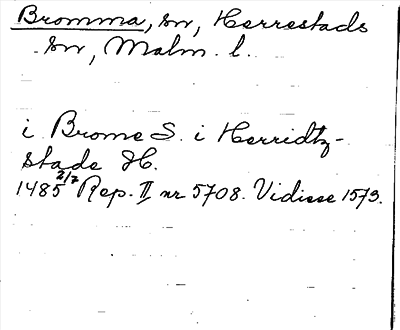 Bromma, sn, Herrestads
sn, Malm. l.
i Brome S. i Herridtz-
stade H.
1485 2/7 Rep. II nr 5708. Vidisse 1573.